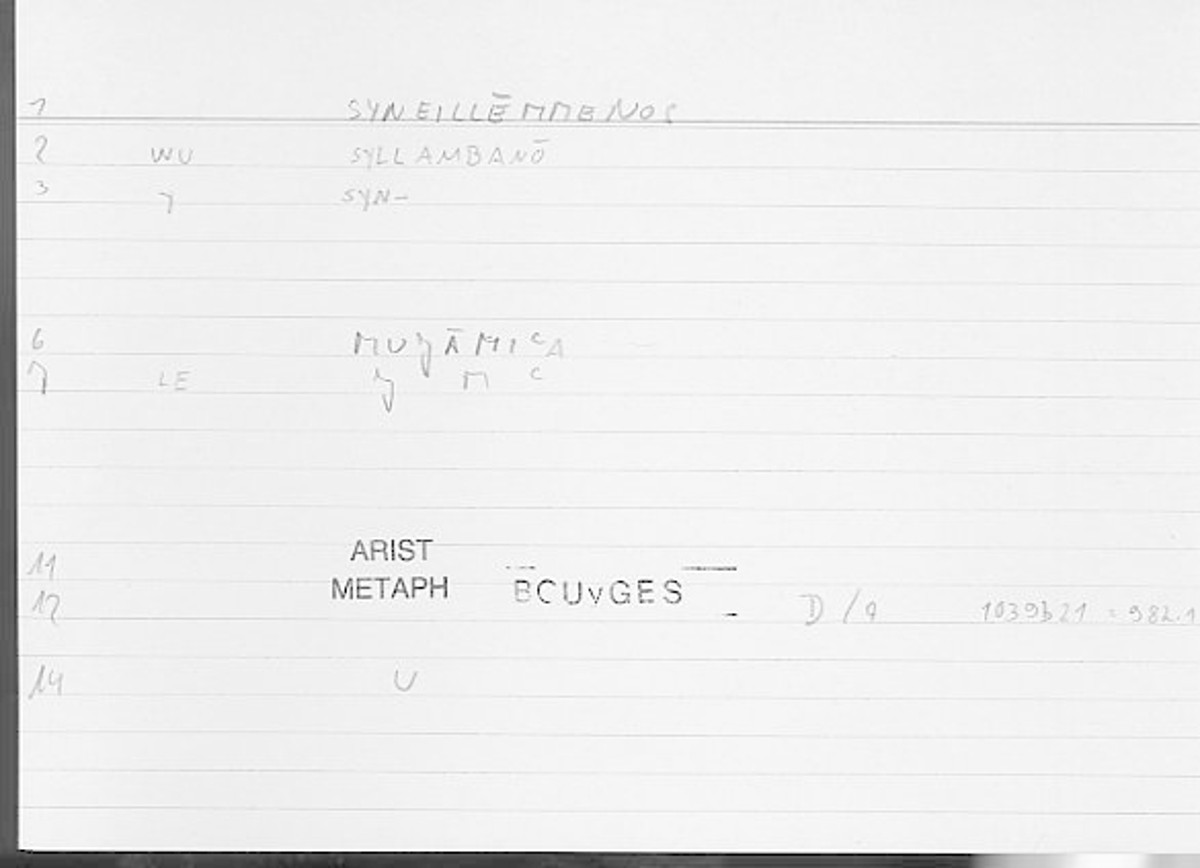 1 SYNEILLĒMMENOS
2 WU SYLLAMBANŌ
3 7 SYN-
6 MUǧĀMIᶜA
7 LE ǧ M ᶜ
11 ARIST
12 METAPH BCUvGES D/9 1039b21 = 982.1
14 U